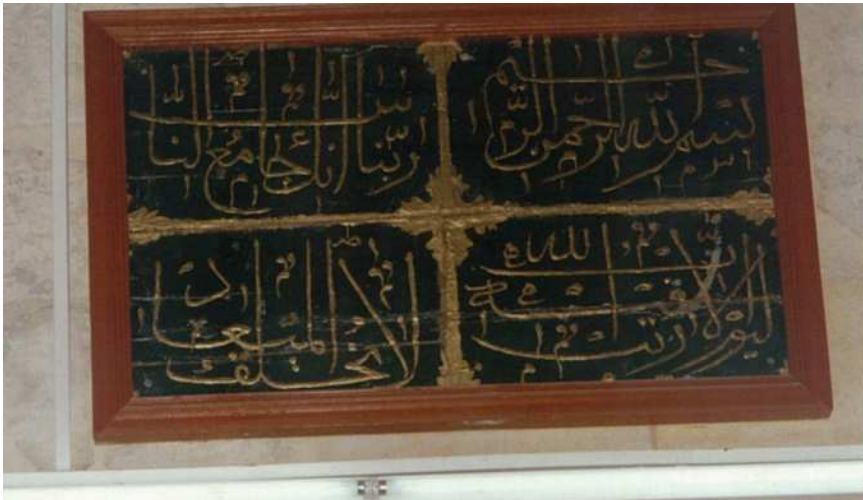 بسم الله الرحمن الرحيم
ربنا انك جامع الناس
ليوم لا ريب فيه ان الله
لا يخلف الميعاد